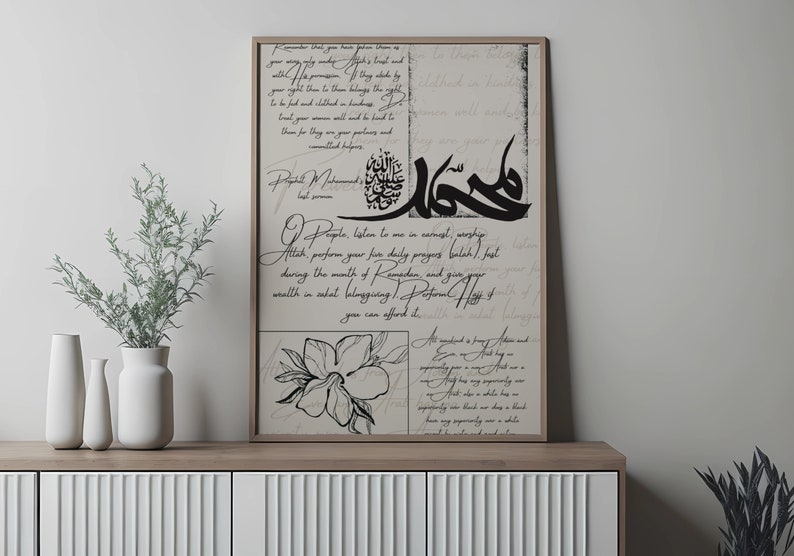 Remember that you have taken them as
your wives only under Allah's trust and
with His permission. If they abide by
your right then to them belongs the right
to be fed and clothed in kindness. Do
treat your women well and be kind to
them for they are your partners and
committed helpers.
محمد
صلى الله عليه وسلم
Prophet Muhammad's
last sermon
O People, listen to me in earnest, worship
Allah, perform your five daily prayers (salah), fast
during the month of Ramadan, and give your
wealth in zakat (almsgiving). Perform Hajj if
you can afford it.
All mankind is from Adam and
Eve, an Arab has no
superiority over a non-Arab nor a
non-Arab has any superiority over
an Arab; also a white has no
superiority over black nor does a black
have any superiority over a white
except by piety and good action.